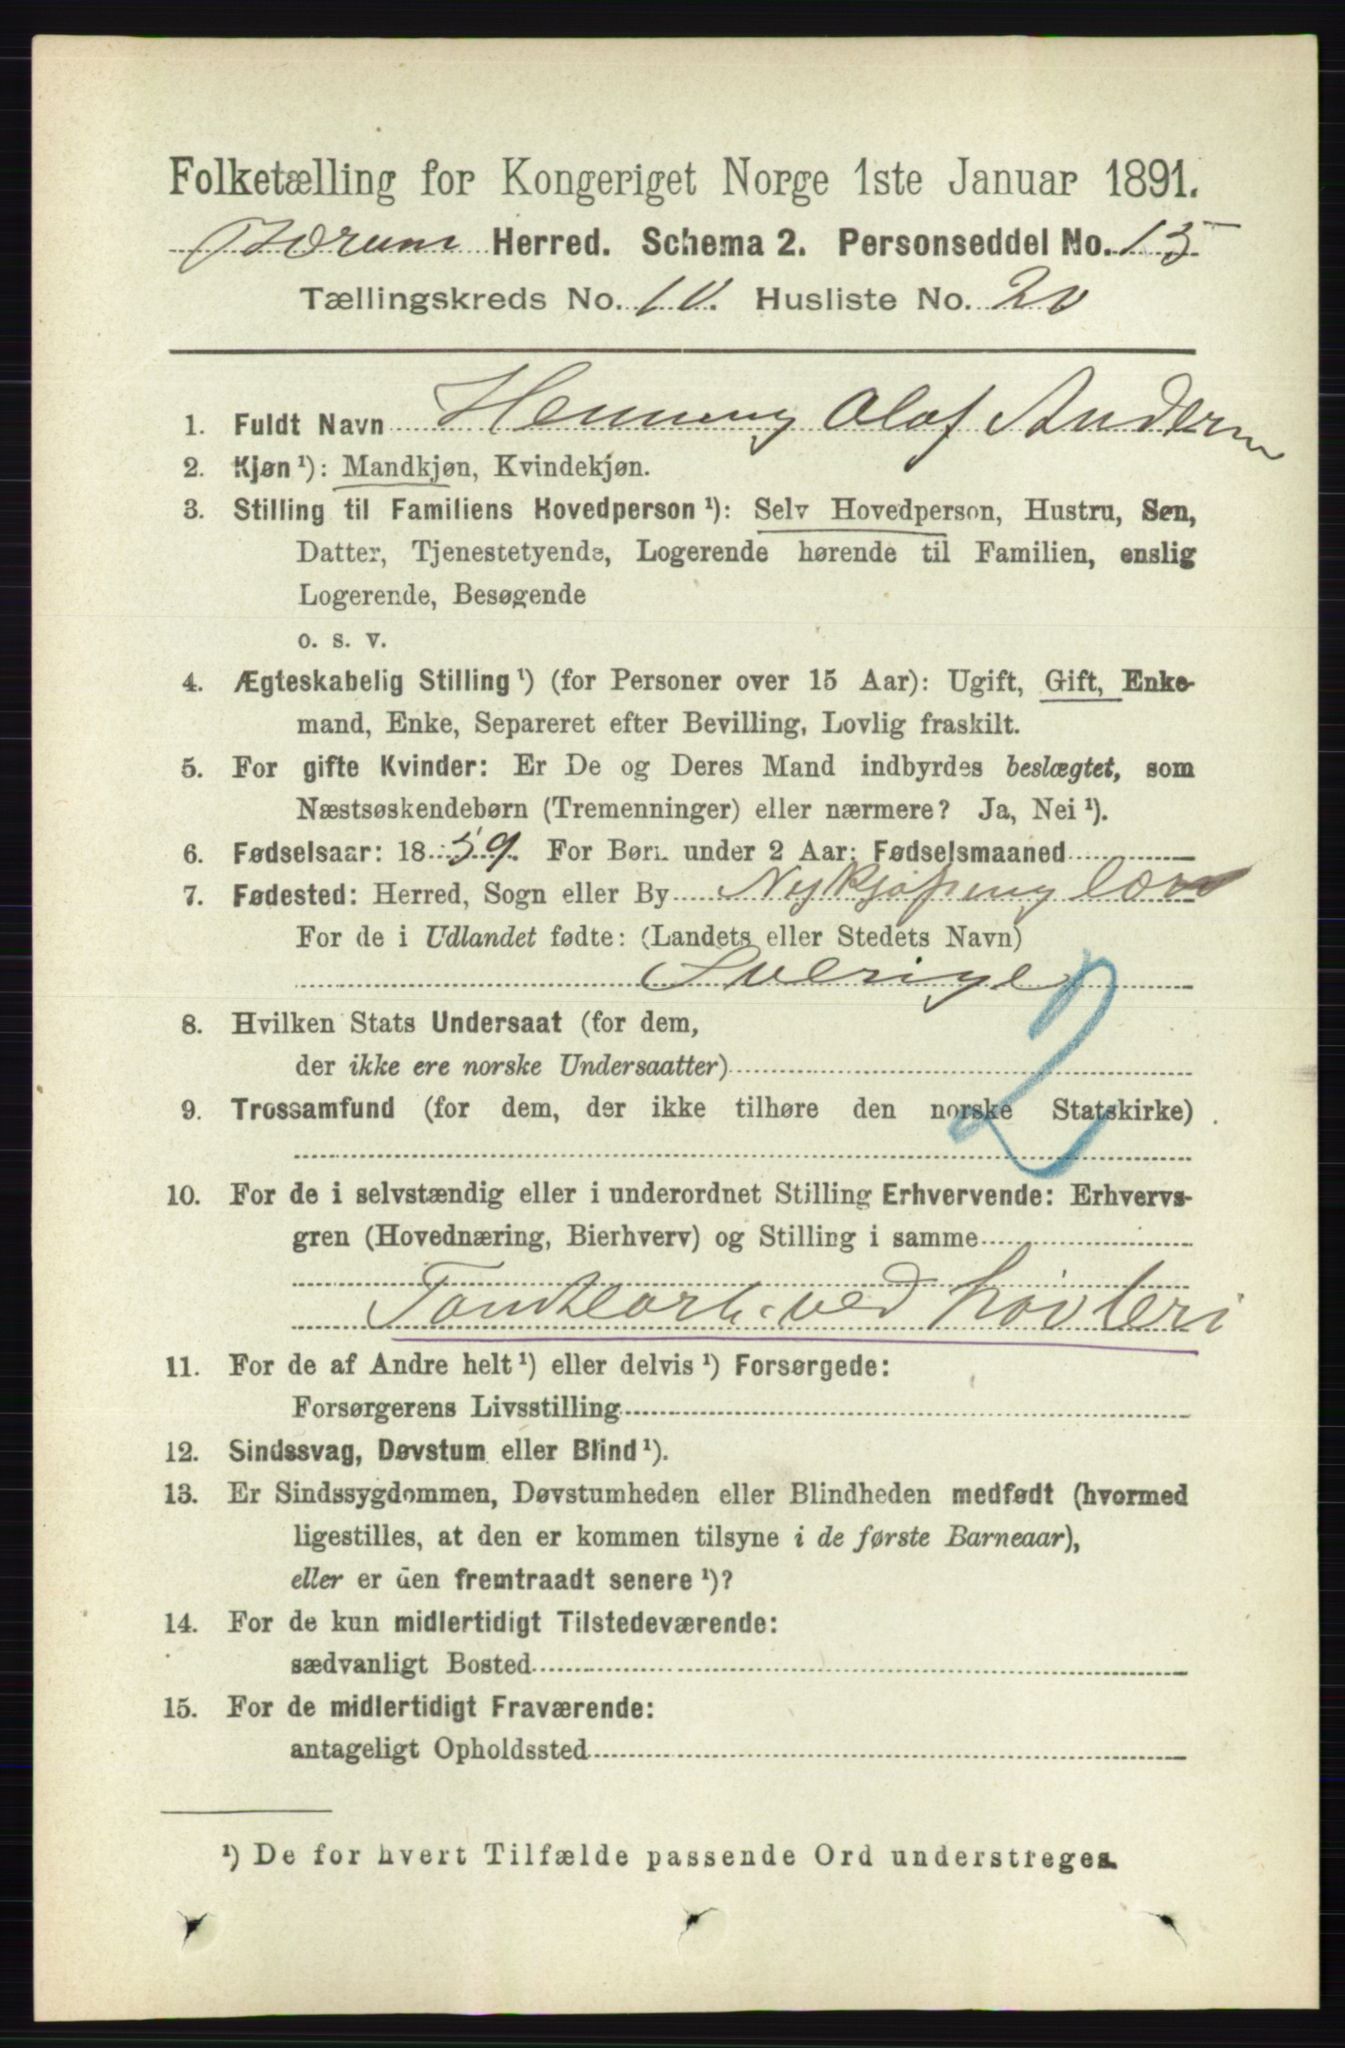 Folketælling for Kongeriget Norge 1ste Januar 1891.
Bærum Herred. Schema 2. Personseddel No. 15
Tællingskreds No. 10. Husliste No. 20
1. Fuldt Navn Henning Olof Andersen
2. Kjøn ¹): Mandkjøn, Kvindekjøn.
3. Stilling til Familiens Hovedperson ¹): Selv Hovedperson, Hustru, Søn,
Datter, Tjenestetyende, Logerende hørende til Familien, enslig
Logerende, Besøgende
o. s. v.
4. Ægteskabelig Stilling ¹) (for Personer over 15 Aar): Ugift, Gift, Enke-
mand, Enke, Separeret efter Bevilling, Lovlig fraskilt.
5. For gifte Kvinder: Er De og Deres Mand indbyrdes beslægtet, som
Næstsøskendebørn (Tremenninger) eller nærmere? Ja, Nei ¹).
6. Fødselsaar: 1859. For Børn under 2 Aar: Fødselsmaaned
7. Fødested: Herred, Sogn eller By Nykjøping læn
For de i Udlandet fødte: (Landets eller Stedets Navn)
Sverige
2
8. Hvilken Stats Undersaat (for dem,
der ikke ere norske Undersaatter)
9. Trossamfund (for dem, der ikke tilhøre den norske Statskirke)
10. For de i selvstændig eller i underordnet Stilling Erhvervende: Erhvervs-
gren (Hovednæring, Bierhverv) og Stilling i samme
Tomtearb. ved høvleri
11. For de af Andre helt ¹) eller delvis ¹) Forsørgede:
Forsørgerens Livsstilling
12. Sindssvag, Døvstum eller Blind ¹).
13. Er Sindssygdommen, Døvstumheden eller Blindheden medfødt (hvormed
ligestilles, at den er kommen tilsyne i de første Barneaar),
eller er den fremtraadt senere ¹)?
14. For de kun midlertidigt Tilstedeværende:
sædvanligt Bosted
15. For de midlertidigt Fraværende:
antageligt Opholdssted
¹) De for hvert Tilfælde passende Ord understreges.